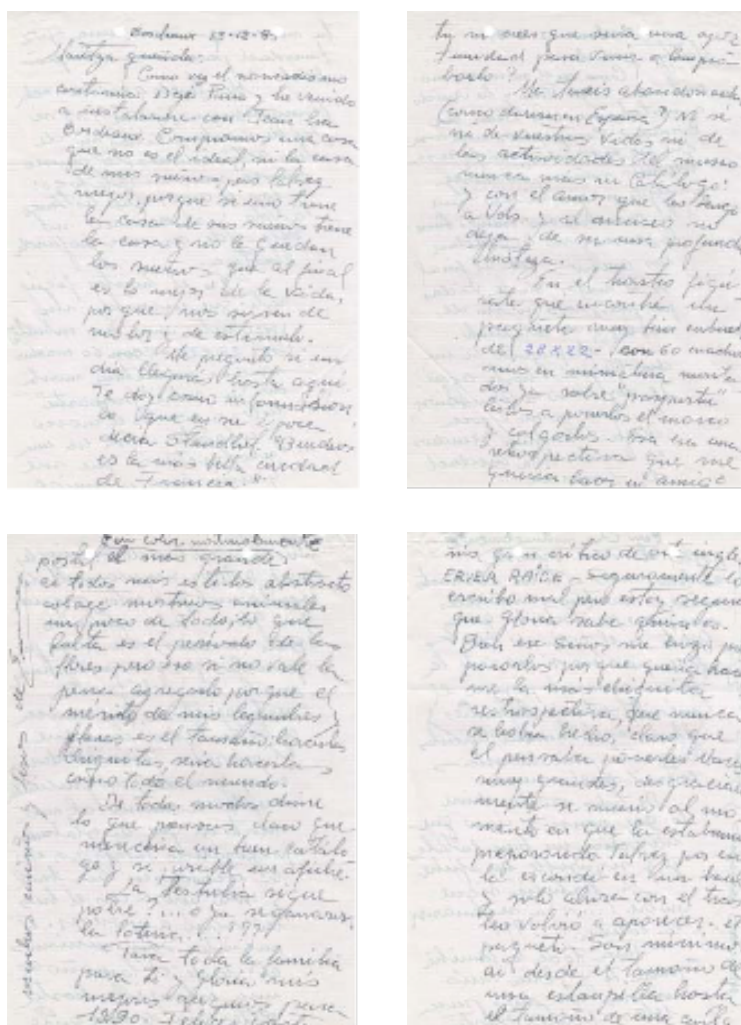 Bordeaux 12-12-8
querida:
Como ves el nomadismo
continua. Dejé Paris y he venido
a instalarme con Jean ha
Bordeaux. Compramos una casa
que no es el ideal, ni la casa
de mis sueños, pero talvez
mejor, porque si uno tiene
la casa de sus sueños tiene
la casa y no le quedan
los sueños que al final
es lo mejor de la vida,
porque nos sirven de
motor y de estimulo.
Me pregunto si un
dia llegarás hasta aqui
Te doy como información
lo que en su epoca
decia Stendhal "Burdeos
es la más bella ciudad
de Francia."
tu no crees que seria una opor
tunidad para venir a compro
barlo?
Me teneis abandonada
(como dicen en España) No sé
ni de vuestras vidas ni de
las actividades del museo
nunca más un Catálogo!
y con el amor que les tengo
a Vds. y al museo no
deja de ser una profunda
tristeza.
En el trasteo figu
rate que encontré un
paquete muy bien embalado
del 28X22 - con 60 cuadros
mios en miniatura monta
dos ya sobre "marquista"
listos a ponerlos el marco
y colgarlos. Era una
retrospectiva que me
queria hacer un amigo
Con color naturalmente
postal el mas grande
de todos mis estilos abstracto
colage mostruos animales
un poco de todo, lo que
falta es el periodo de las
flores pero eso si no vale la
pena agregarlo porque el
merito de mis legumbres y
flores es el tamaño; hacerlas
chiquitas, seria hacerlas
como todo el mundo.
De todos modos dime
lo que piensas claro que
mereceria un buen catalo
go y
La Tertulia sigue
pobre!... o ya se ganaron
la loteria...!???
Para toda la familia
para ti y Gloria mis
mejores para
1990. Felices
muchos cariños y besos de
mio gran critico de art ingles
ERIER RAICE - Seguramente lo
escribo mal pero estoy segura
que Gloria sabe quien es.
Bien ese Señor me
ponerlos porque queria hacer
me la más chiquita
retrospectiva que nunca
se habia hecho, claro que
el pensaba ponerles
muy grandes, desgraciada
mente se murió al mo
mento en que la estabamos
preparando. Talvez por eso
la escondi en un baul
y solo ahora con el tras
teo volvió a aparecer el
paquete. Son minimo
desde el tamaño de
una estampilla hasta
el tamaño de una